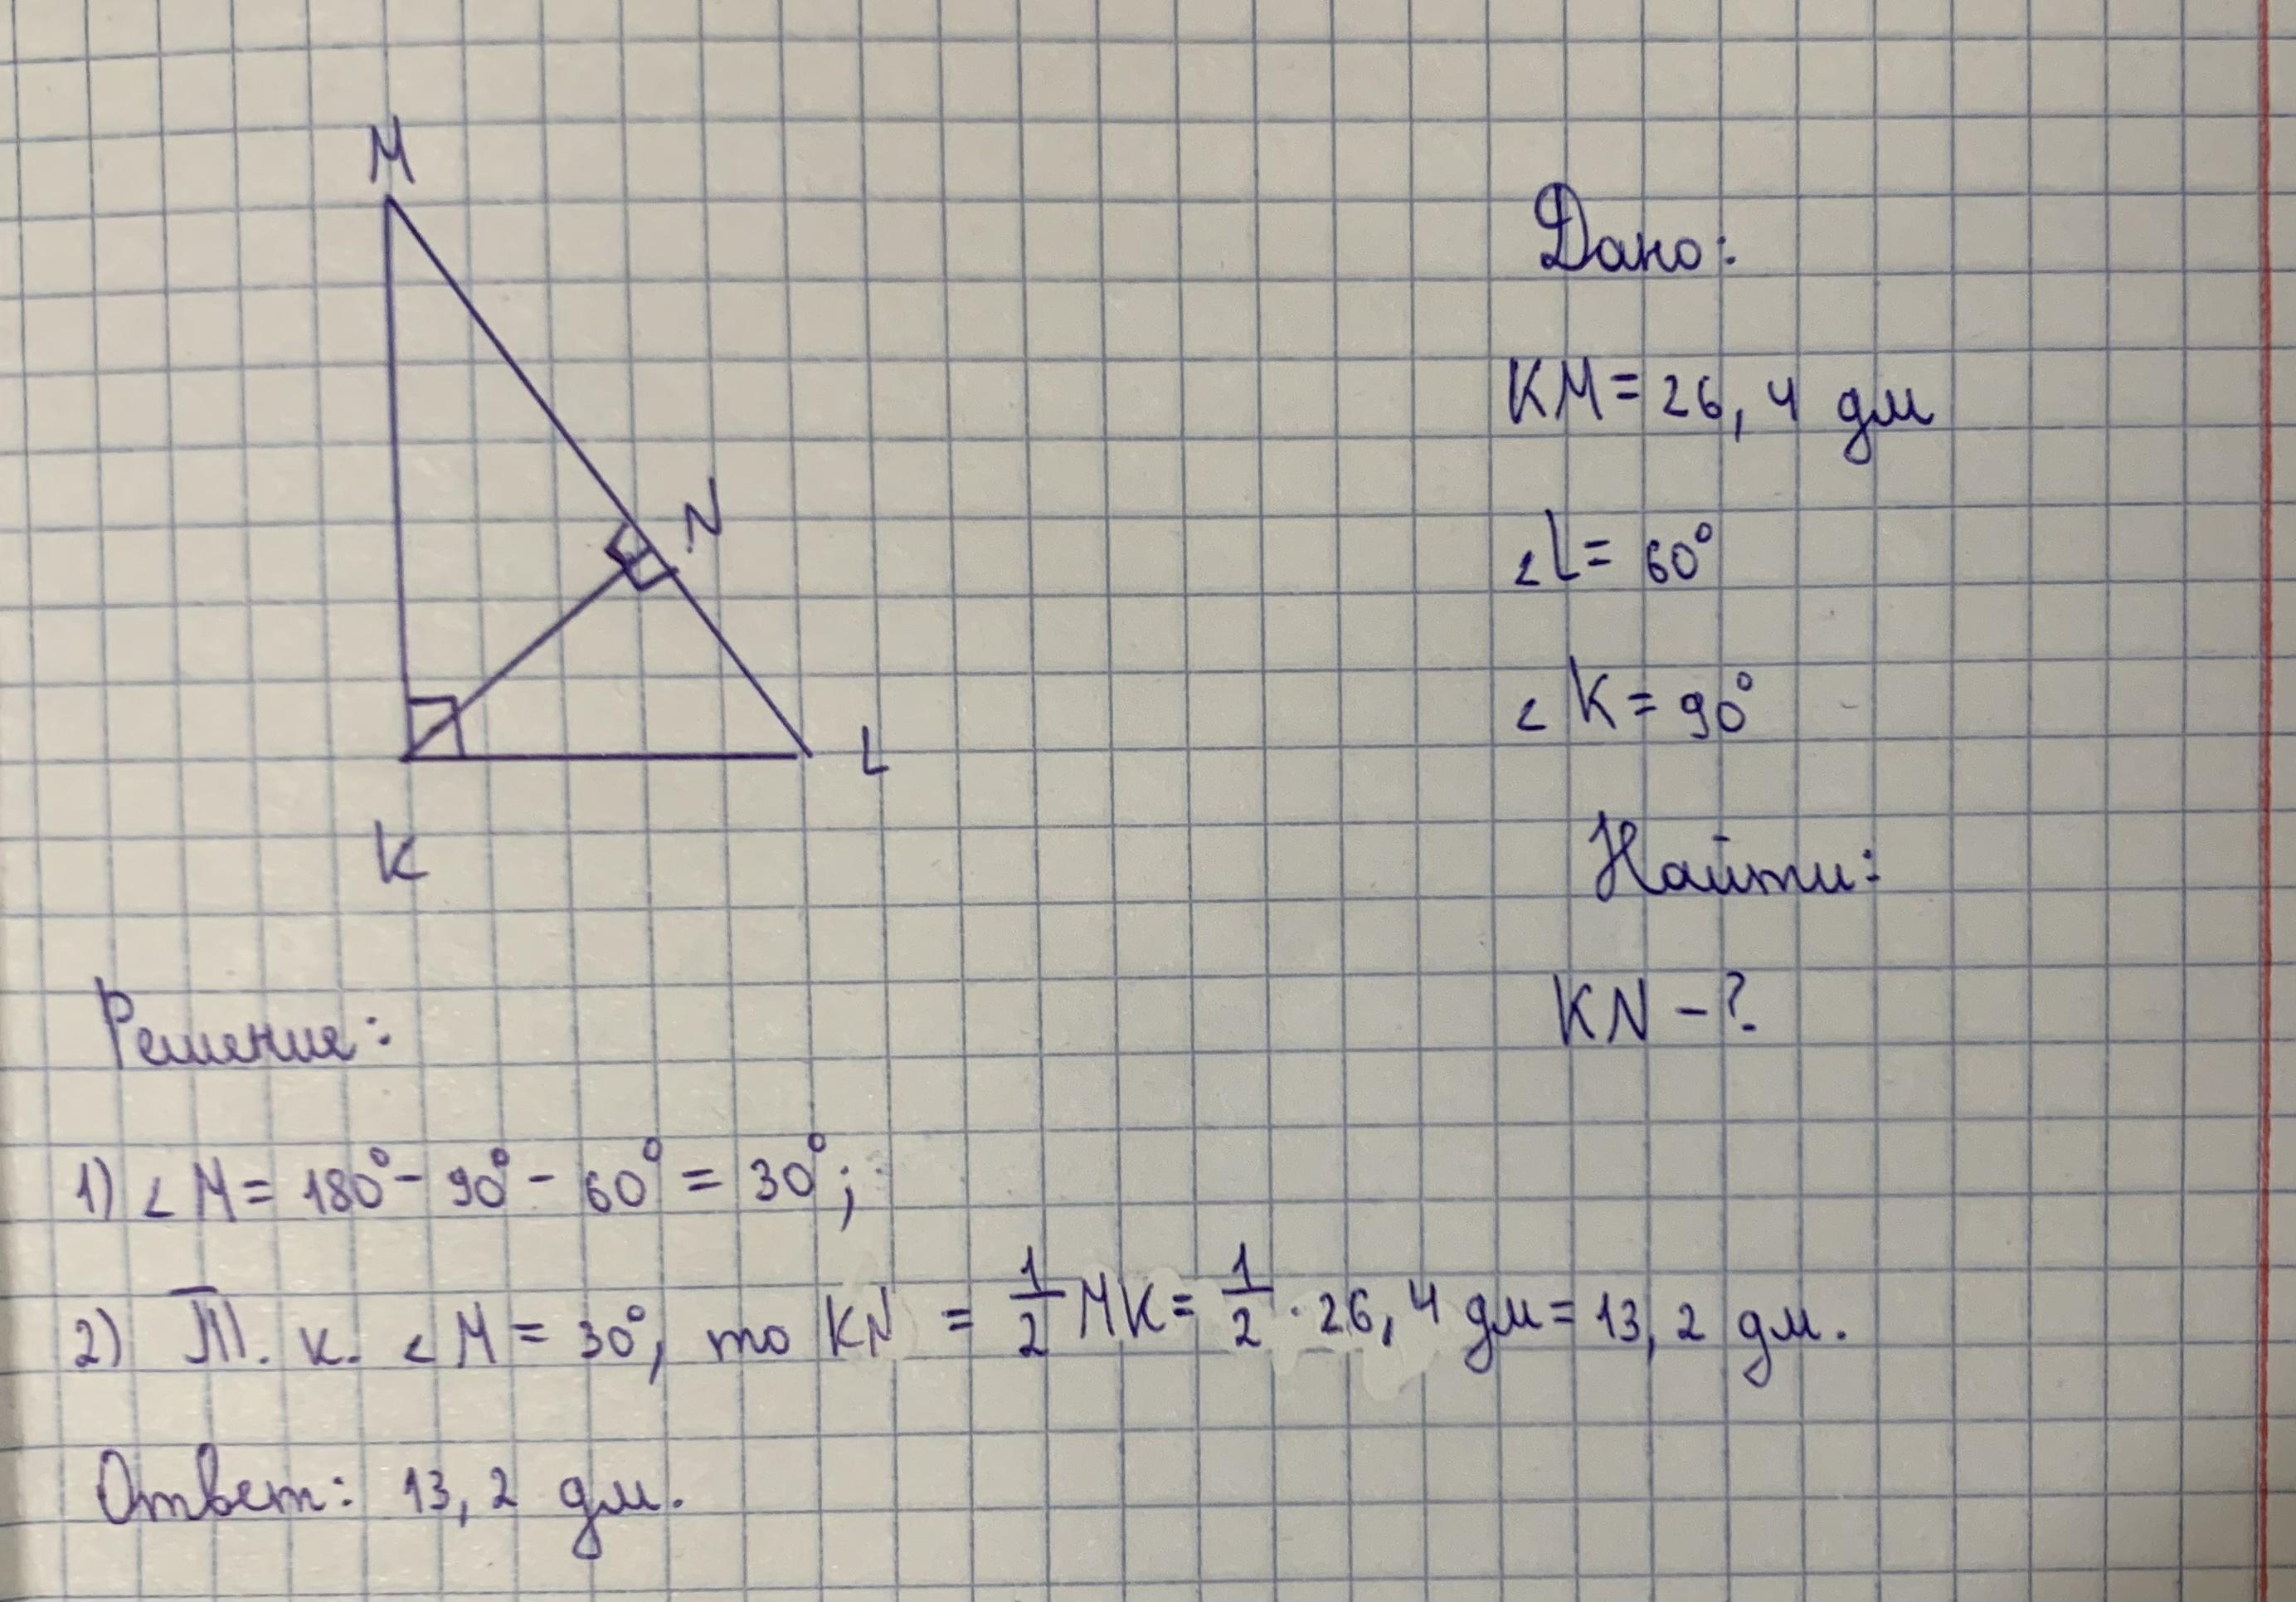 M
N
L
K
Дано:
KM = 26,4 дм
∠L = 60°
∠K = 90°
Найти:
KN - ?
Решение:
1) ∠M = 180° - 90° - 60° = 30°;
2) Т. к. ∠M = 30°, то KN = 1/2 MK = 1/2 · 26,4 дм = 13,2 дм.
Ответ: 13,2 дм.